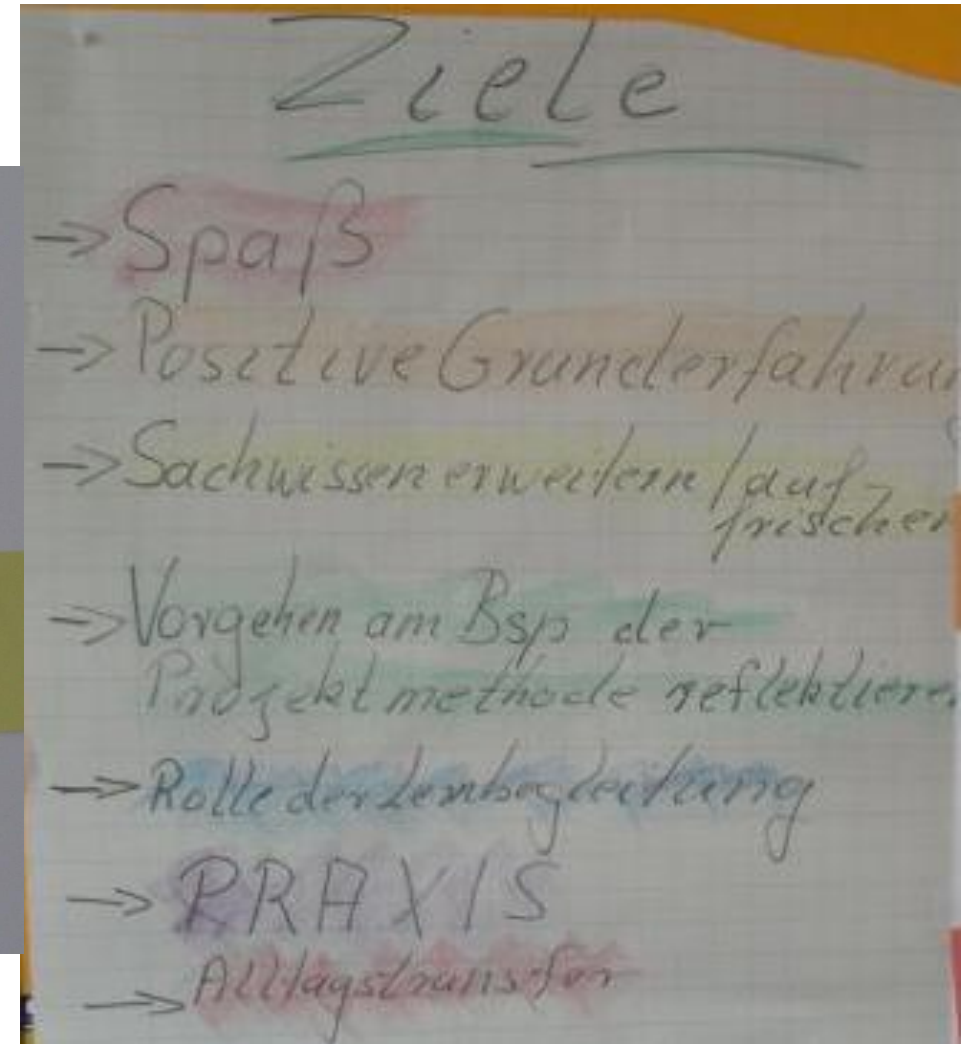 Ziele
→ Spaß
→ Positive Grunderfahrun
→ Sachwissen erweitern / auf-
frischen
→ Vorgehen am Bsp der
Projektmethode reflektieren
→ Rolle der Lernbegleitung
→ PRAXIS
→ Alltagstransfer